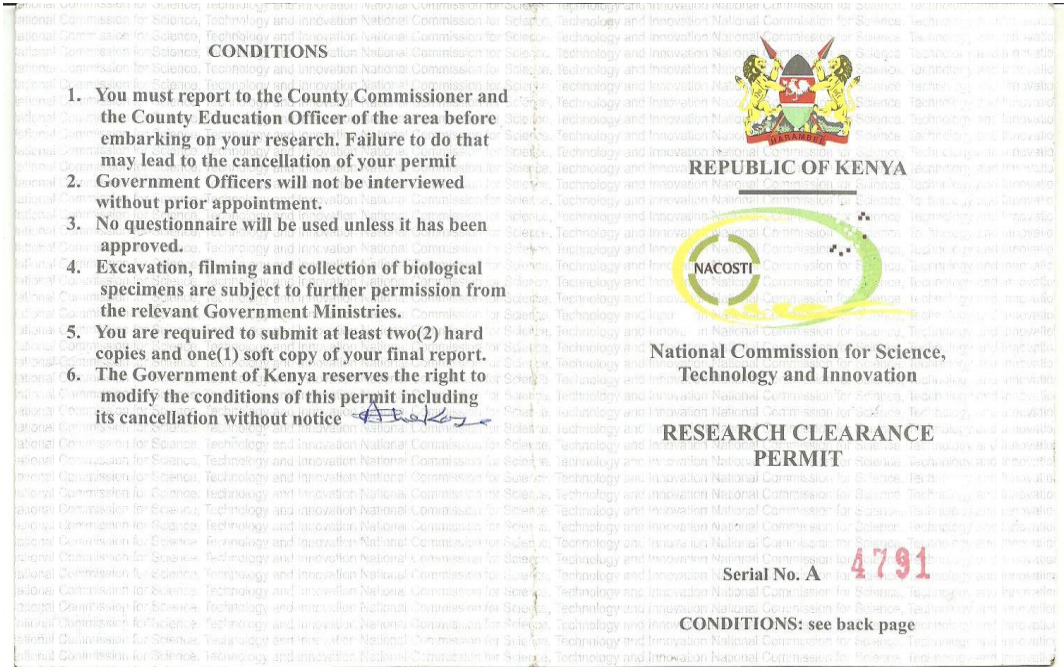 CONDITIONS
1. You must report to the County Commissioner and
the County Education Officer of the area before
embarking on your research. Failure to do that
may lead to the cancellation of your permit
2. Government Officers will not be interviewed
without prior appointment.
3. No questionnaire will be used unless it has been
approved.
4. Excavation, filming and collection of biological
specimens are subject to further permission from
the relevant Government Ministries.
5. You are required to submit at least two(2) hard
copies and one(1) soft copy of your final report.
6. The Government of Kenya reserves the right to
modify the conditions of this permit including
its cancellation without notice
HARAMBEE
REPUBLIC OF KENYA
NACOSTI
National Commission for Science,
Technology and Innovation
RESEARCH CLEARANCE
PERMIT
Serial No. A 4791
CONDITIONS: see back page